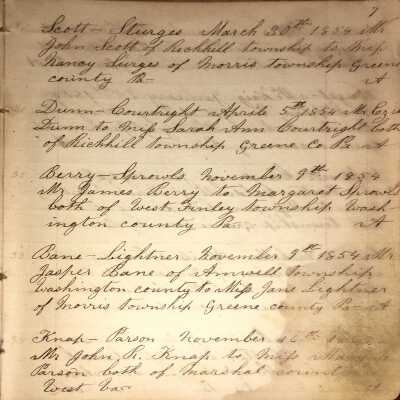 7
Scott - Sturges March 30th 1854 Mr
John Scott of Richhill township to Miss
Nancy Surges of Morris township Greene
county Pa - A
Dunn - Courtright Aprile 5th 1854 Mr Ezra
Dunn to Miss Sarah Ann Courtright both
of Richhill township Greene Co Pa A
Berry - Sprowls November 9th 1854
Mr James Berry to Margaret Sprowls
both of West Finley township Wash-
ington county Pa - A
Bane - Lightner November 9th 1854 Mr
Jasper Bane of Amwell township
Washington county to Miss Jane Lightner
of Morris township Greene county Pa - A
Knap - Parson November 16th
Mr John R. Knap to Miss
Parson both of Marshal county
West Va